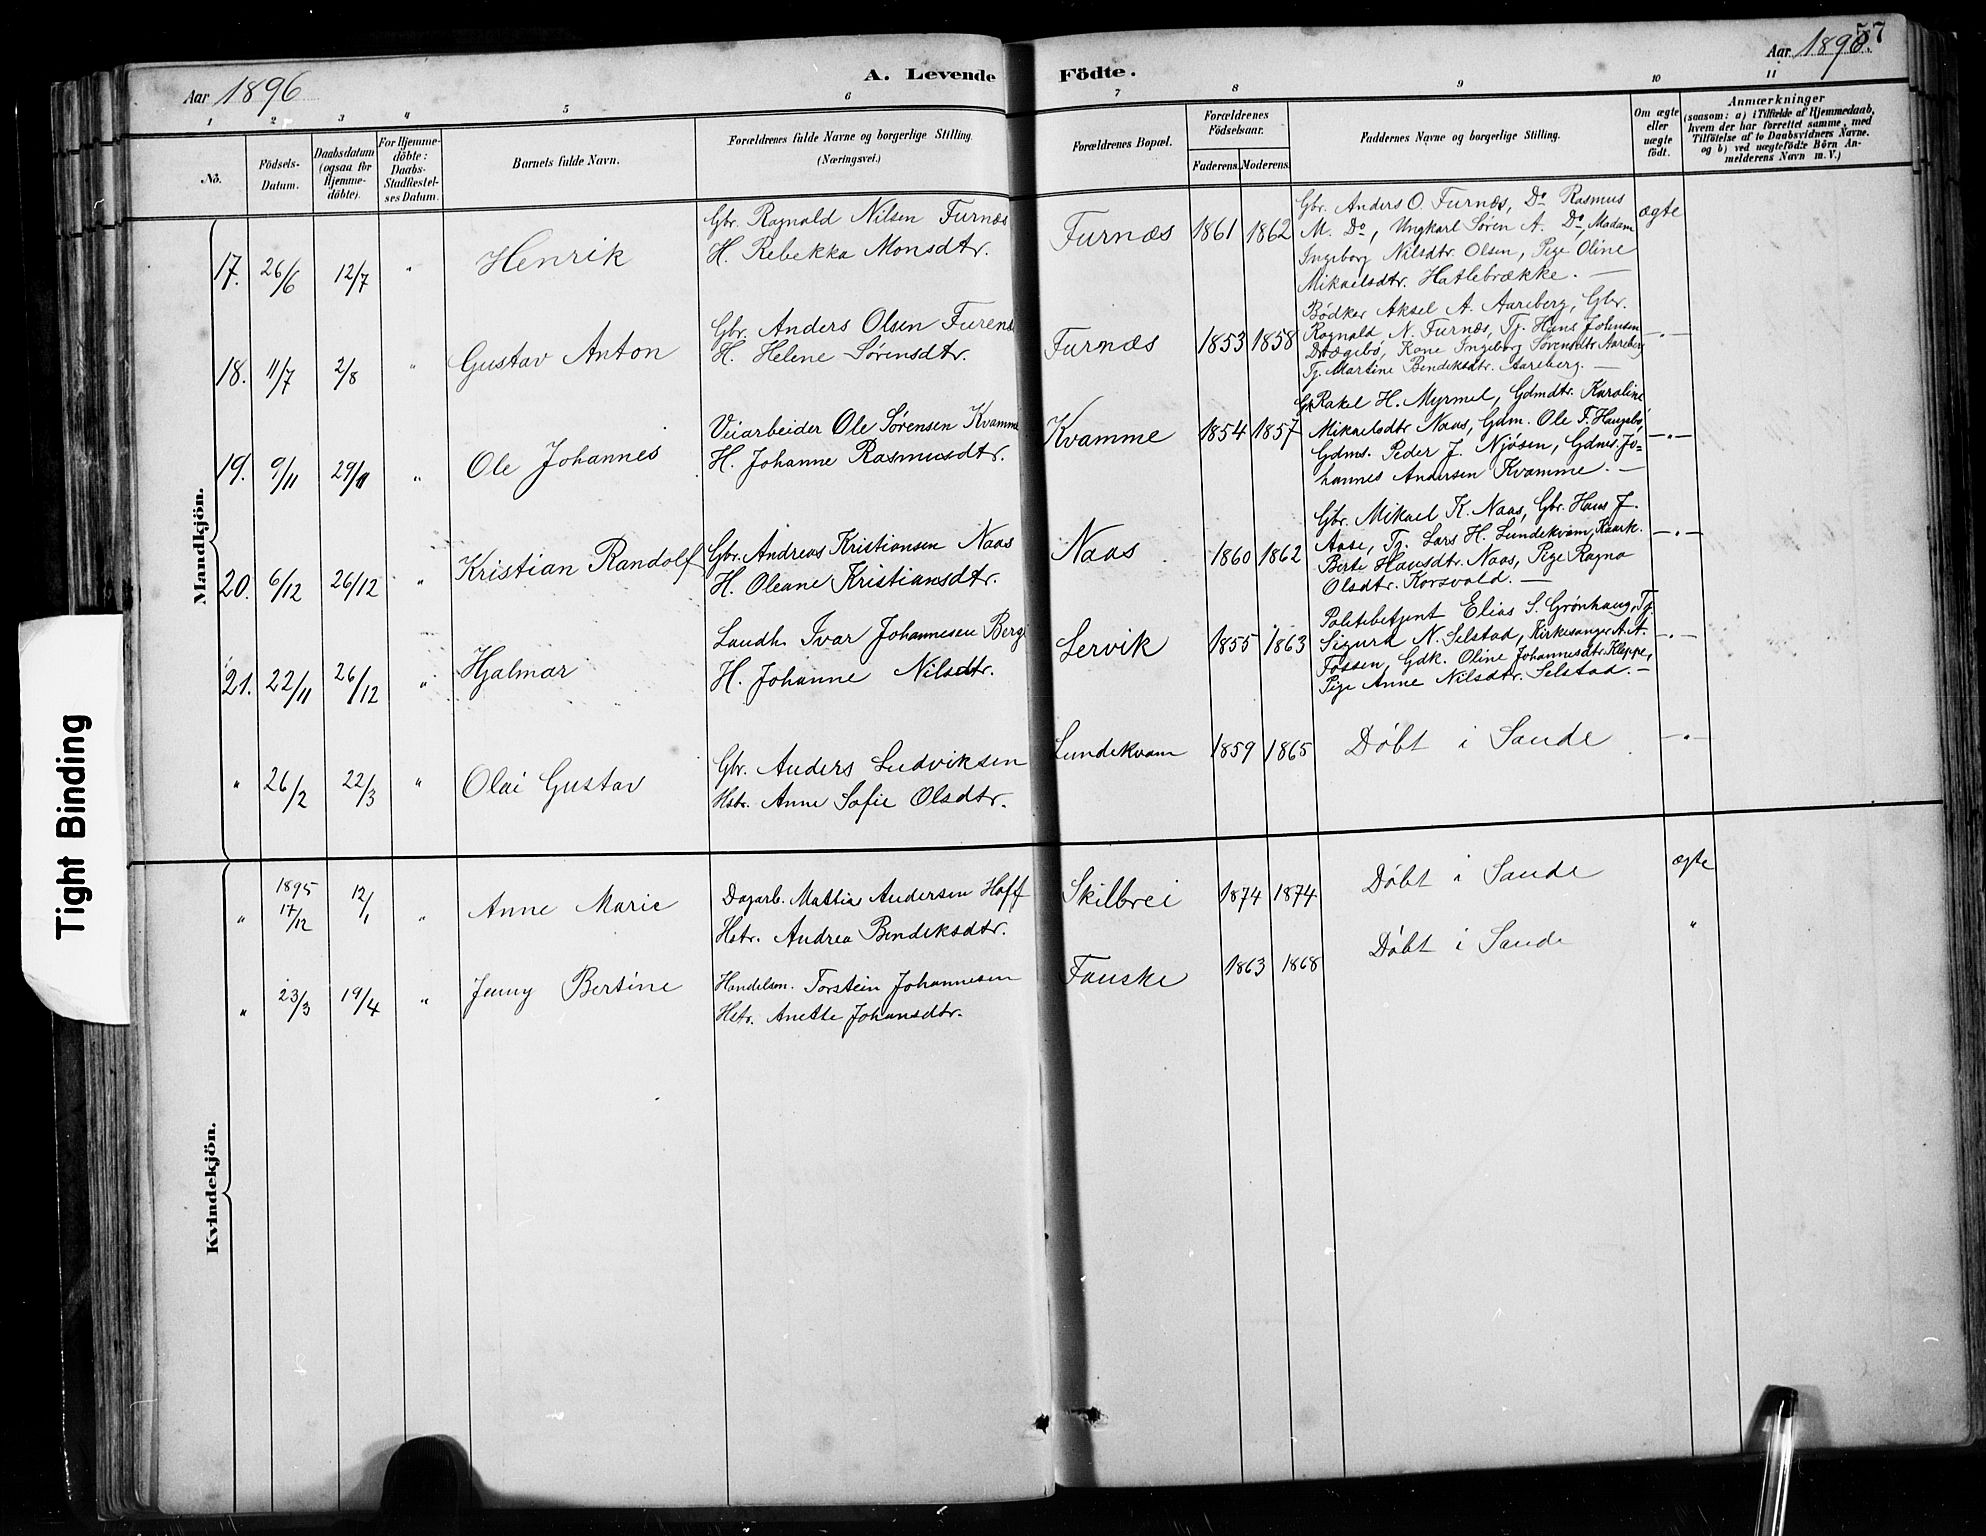 57
Aar 1896
A. Levende Födte.
Aar 1896.
1 2 3 4 5 6 7 8 9 10 11
No.
Födsels-Datum.
Daabsdatum (ogsaa for Hjemmedöbte).
For Hjemmedöbte: Daabs-Stadfæstelses Datum.
Barnets fulde Navn.
Forældrenes fulde Navne og borgerlige Stilling. (Næringsvei.)
Forældrenes Bopæl.
Forældrenes Födselsaar.
Faderens. Moderens.
Faddernes Navne og borgerlige Stilling.
Om ægte eller uægte födt.
Anmærkninger
(saasom: a) i Tilfælde af Hjemmedaab, hvem der har forrettet samme, med Tilföielse af to Daabsvidners Navne. og b) ved uægtefödte Börn Anmelderens Navn m. V.)
Mandkjön.
17. 26/6 12/7 " Henrik
Gbr. Ragnald Nilsen Furnæs
H. Rebekka Monsdtr.
Furnæs 1861 1862
Gbr. Anders O. Furnæs, Do Rasmus
M. Do, Ungkarl Søren A. Do, Madam
Ingeborg Nilsdtr. Olsen, Pige Oline
Mikaelsdtr. Hatlebrække. —
ægte
18. 11/7 2/8 " Gustav Anton
Gbr. Anders Olsen Furenæs
H. Helene Sørensdtr.
Furnæs 1853 1858
Bødker Aksel A. Aareberg, Gbr.
Ragnald N. Furnæs, Tj. Hans Johnsen
Drægebø, Kone Ingeborg Sørensdtr. Aareberg
Tj. Martine Bendiksdtr. Aareberg. —
—"—
19. 9/11 29/11 " Ole Johannes
Veiarbeider Ole Sørensen Kvamme
H. Johanne Rasmusdtr.
Kvamme 1854 1857
Gk. Rakel H. Myrmel, Gdmdtr. Karoline
Mikaelsdtr Naas, Gdm. Ole T. Haugsbø,
Gdms. Peder J. Njøsen, Gdms. Jo-
hannes Andersen Kvamme. —
—"—
20. 6/12 26/12 " Kristian Randolf
Gbr. Andreas Kristiansen Naas
H. Oleane Kristiansdtr.
Naas 1860 1862
Gbr. Mikael K. Naas, Gbr. Hans J.
Aase, Tj. Lars H. Lundekvam, Kaark.
Berte Hansdtr. Naas, Pige Ragna
Olsdtr. Korsvold. —
—"—
21. 22/11 26/12 " Hjalmar
Landh. Ivar Johannesen Berge
H. Johanne Nilsdtr.
Lervik 1855 1863
Politibetjent Elias S. Grønhaug, Tj.
Sigurd N. Selstad, Kirkesanger A. A.
Fossen, Gdk. Oline Johannesdtr. Kleppe,
Pige Anne Nilsdtr. Selstad. —
—"—
" 26/2 22/3 " Olai Gustav
Gbr. Anders Ludviksen
Hstr. Anne Sofie Olsdtr.
Lundekvam 1859 1865
Døbt i Sande
—"—
Kvindekjön.
" 1895 17/12 12/1 " Anne Marie
Dagarb. Mattias Andersen Hoff
Hstr. Andrea Bendiksdtr.
Skilbrei 1874 1874
Døbt i Sande
ægte
" 23/3 19/4 " Jenny Bertine
Handelsm. Torstein Johannesen
Hstr. Anette Johansdtr.
Fauske 1863 1868
Døbt i Sande
"
Tight Binding